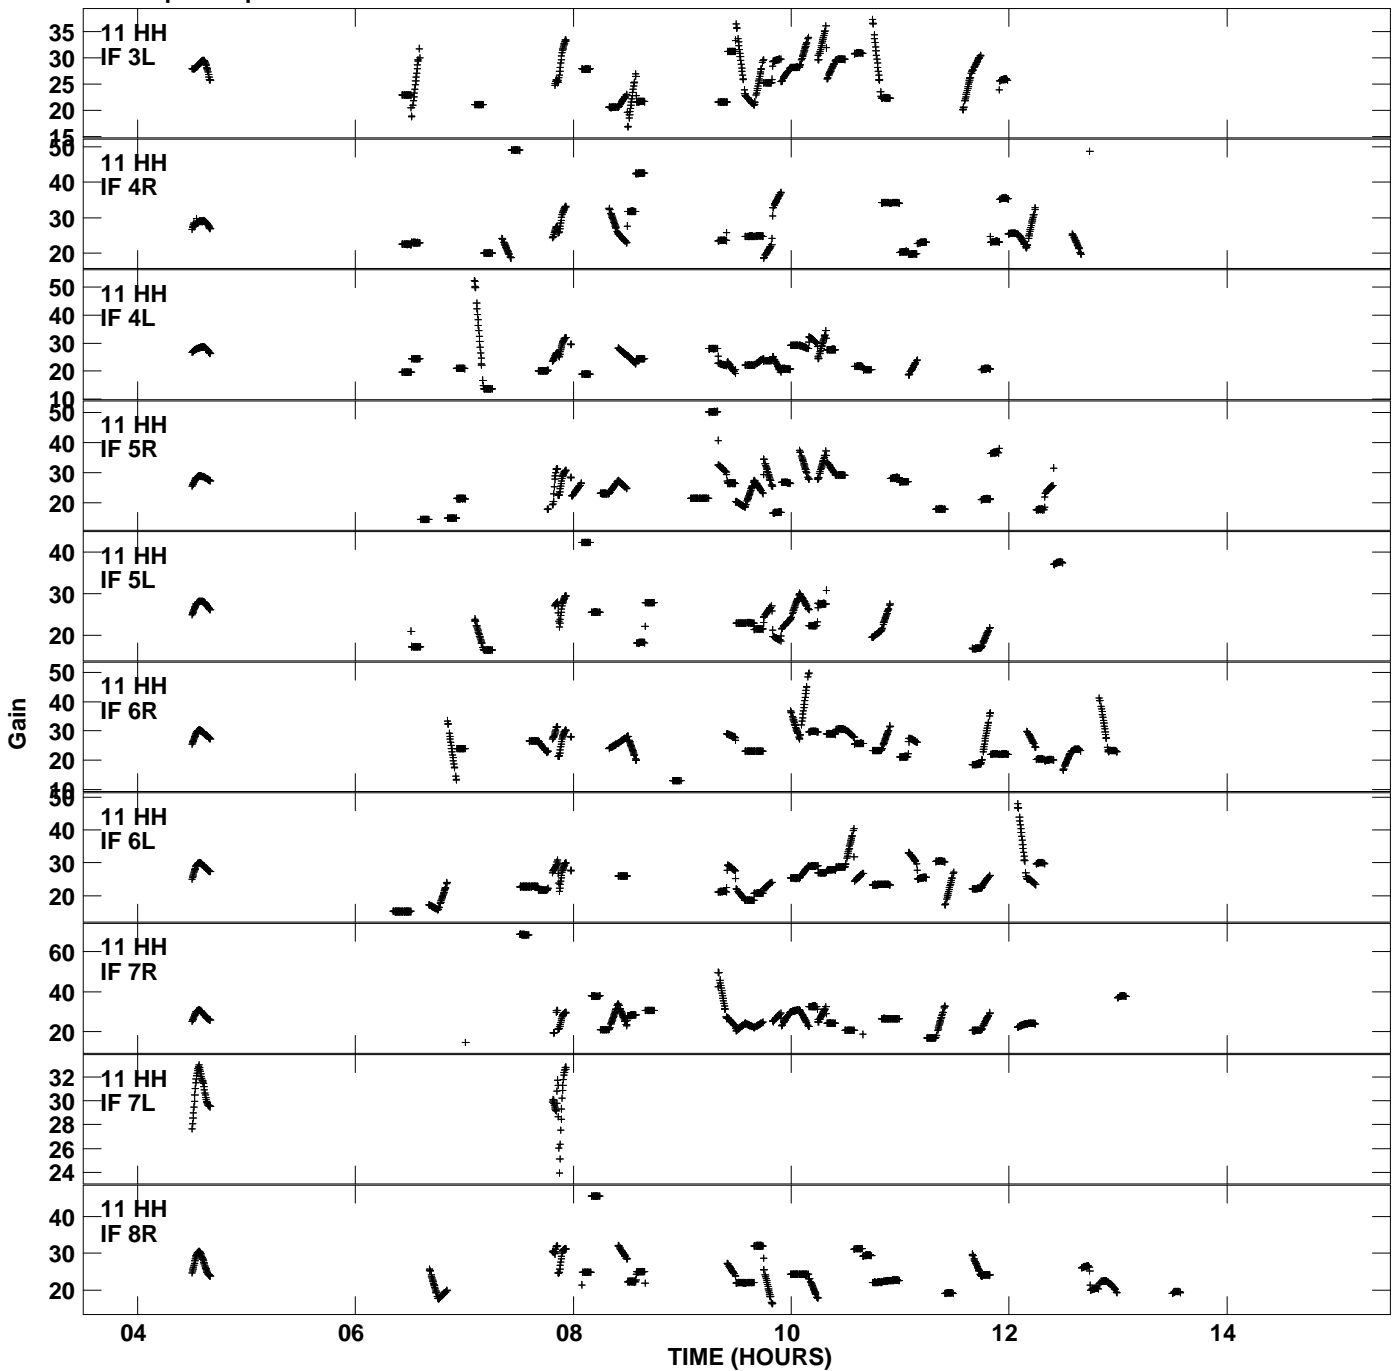 11 HH
IF 3L
35
30
25
20
15
11 HH
IF 4R
50
40
30
20
11 HH
IF 4L
50
40
30
20
10
11 HH
IF 5R
50
40
30
20
11 HH
IF 5L
40
30
20
11 HH
IF 6R
50
40
30
20
10
11 HH
IF 6L
50
40
30
20
11 HH
IF 7R
60
40
20
11 HH
IF 7L
32
30
28
26
24
11 HH
IF 8R
40
30
20
Gain
04 06 08 10 12 14
TIME (HOURS)